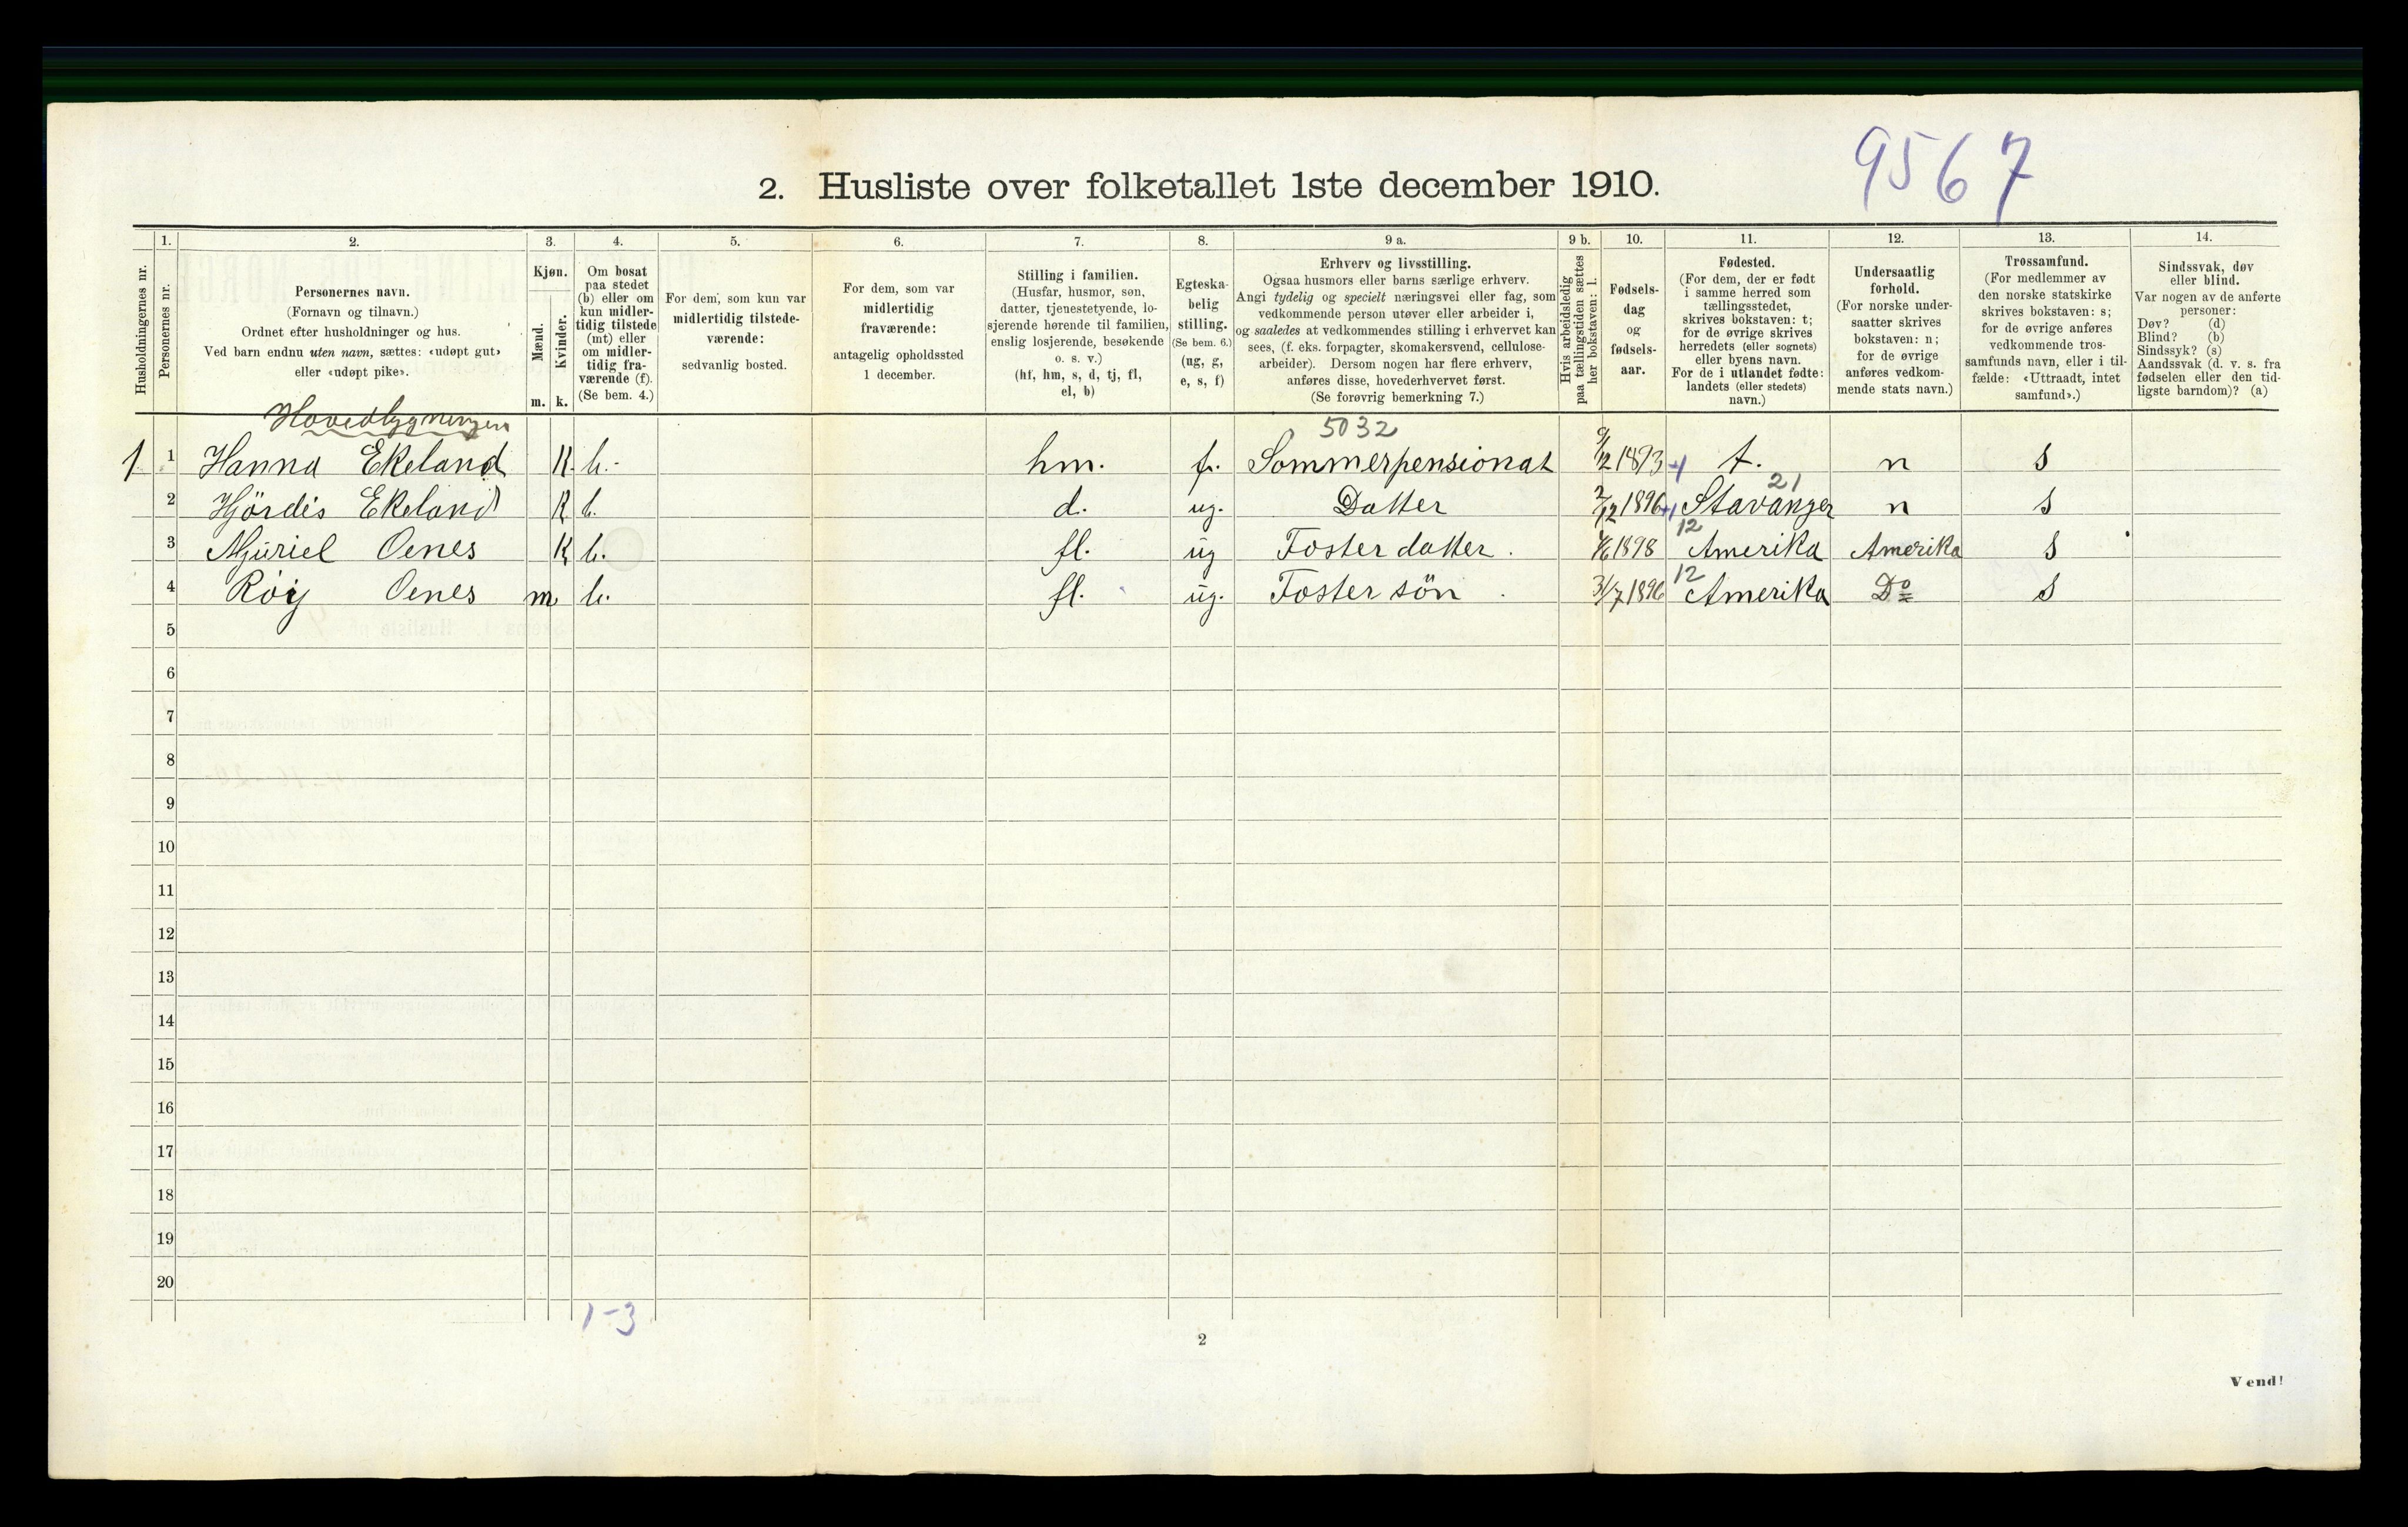 9567
2. Husliste over folketallet 1ste december 1910.
Husholdningernes nr.
1.
Personernes nr.
2.
Personernes navn.
(Fornavn og tilnavn.)
Ordnet efter husholdninger og hus.
Ved barn endnu uten navn, sættes: «udøpt gut»
eller «udøpt pike».
3.
Kjøn.
Mænd.
Kvinder.
m. k.
4.
Om bosat
paa stedet
(b) eller om
kun midler-
tidig tilstede
(mt) eller
om midler-
tidig fra-
værende (f).
(Se bem. 4.)
5.
For dem, som kun var
midlertidig tilstede-
værende:
sedvanlig bosted.
6.
For dem, som var
midlertidig
fraværende:
antagelig opholdssted
1 december.
7.
Stilling i familien.
(Husfar, husmor, søn,
datter, tjenestetyende, lo-
sjerende hørende til familien,
enslig losjerende, besøkende
o. s. v.)
(hf, hm, s, d, tj, fl,
el, b)
8.
Egteska-
belig
stilling.
(Se bem. 6.)
(ug, g,
e, s, f)
9 a.
Erhverv og livsstilling.
Ogsaa husmors eller barns særlige erhverv.
Angi tydelig og specielt næringsvei eller fag, som
vedkommende person utøver eller arbeider i,
og saaledes at vedkommendes stilling i erhvervet kan
sees, (f. eks. forpagter, skomakersvend, cellulose-
arbeider). Dersom nogen har flere erhverv,
anføres disse, hovederhvervet først.
(Se forøvrig bemerkning 7.)
9 b.
Hvis arbeidsledig
paa tællingstiden sættes
her bokstaven: l.
10.
Fødsels-
dag
og
fødsels-
aar.
11.
Fødested.
(For dem, der er født
i samme herred som
tællingsstedet,
skrives bokstaven: t;
for de øvrige skrives
herredets (eller sognets)
eller byens navn.
For de i utlandet fødte:
landets (eller stedets)
navn.)
12.
Undersaatlig
forhold.
(For norske under-
saatter skrives
bokstaven: n;
for de øvrige
anføres vedkom-
mende stats navn.)
13.
Trossamfund.
(For medlemmer av
den norske statskirke
skrives bokstaven: s;
for de øvrige anføres
vedkommende tros-
samfunds navn, eller i til-
fælde: «Uttraadt, intet
samfund».)
14.
Sindssvak, døv
eller blind.
Var nogen av de anførte
personer:
Døv? (d)
Blind? (b)
Sindssyk? (s)
Aandssvak (d. v. s. fra
fødselen eller den tid-
ligste barndom)? (a)
Hovedbygningen
5032
1 1 Hanna Ekeland K. b. hm. f. Sommerpensionat t. n s
21
2 Hjördis Ekeland K b. d. ug. Datter 2/12 1896 +1 Stavanger n s
12
3 Mjuriel Oenes K b. fl. ug Foster datter. 1898 Amerika Amerika s
12
4 Roij Oenes m b. fl. ug. Foster sön 31/7 1896 Amerika Do s
5
6
7
8
9
10
11
12
13
14
15
16
17
18
19
20
1-3
2
Vend!